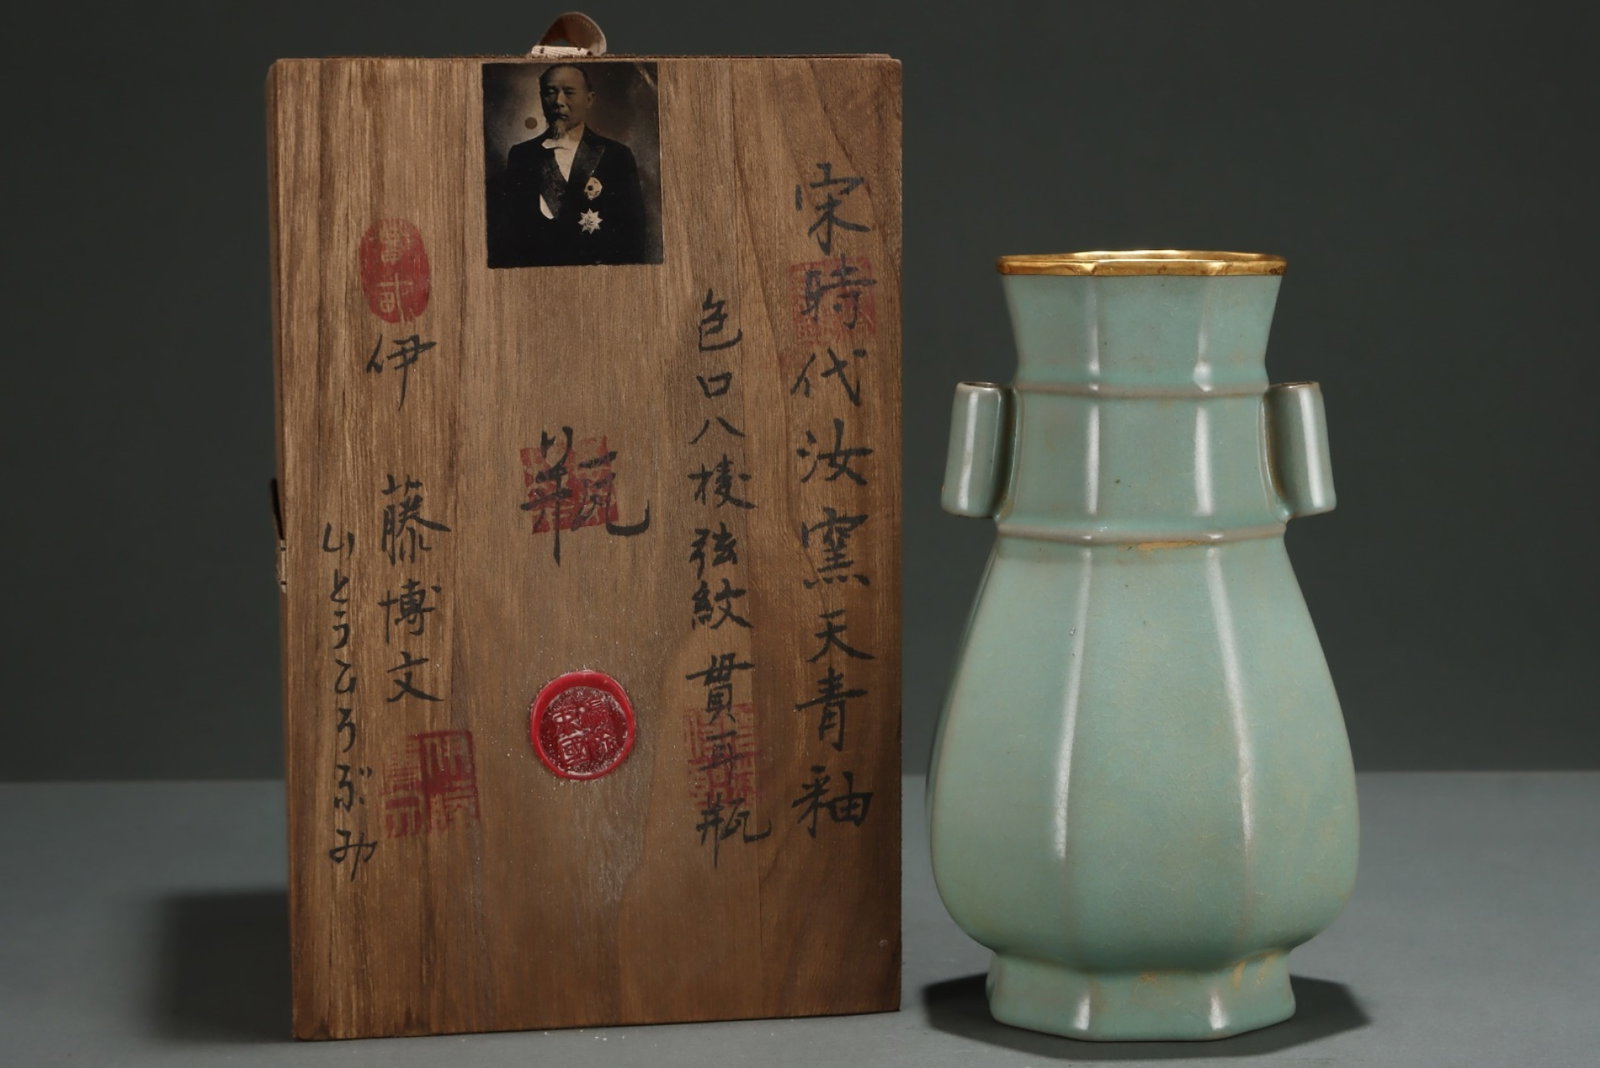 宋時代汝窯天青釉
色口八棱弦紋貫耳瓶
伊藤博文
いとうひろぶみ